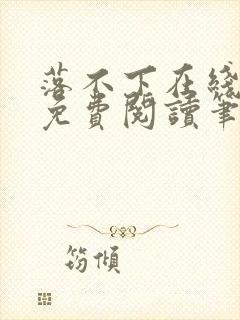 落不下在綫
免費閱讀筆
筠傾